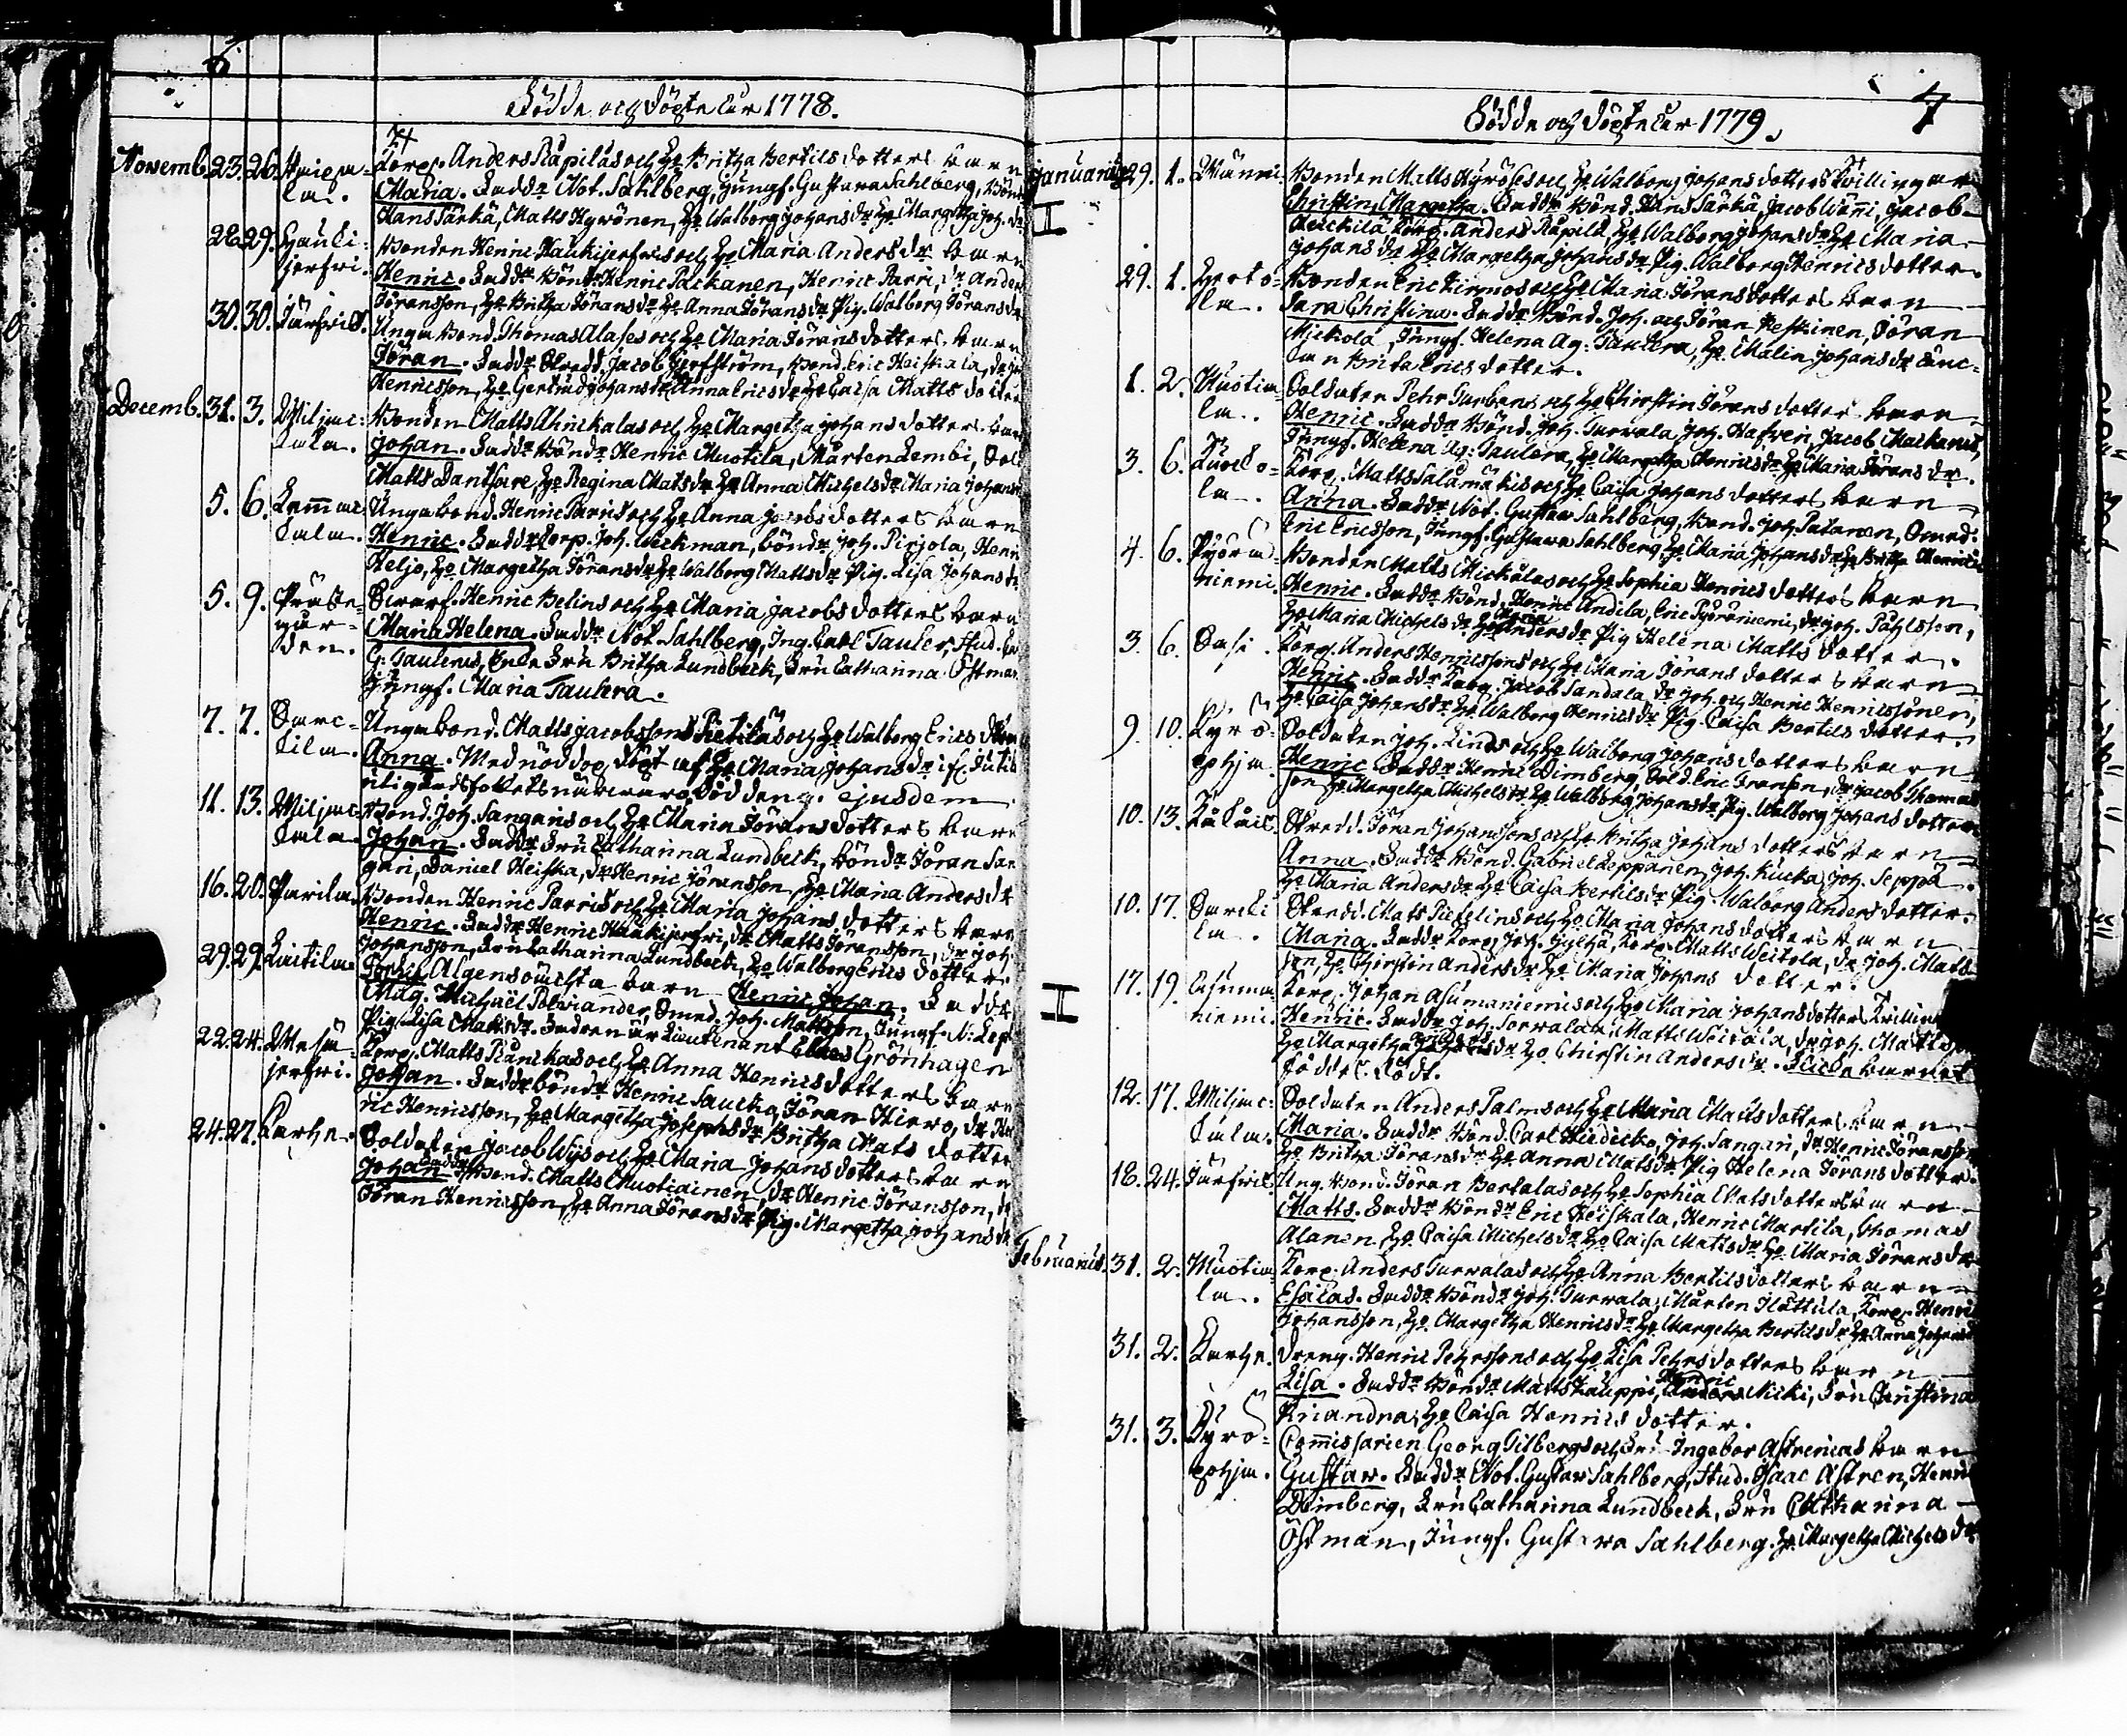 6.
Födde och döpte år 1778.
Novemb. 23. 26. Korp. Anders Räpiläs och H:o Britha Bertils dotters barn
Maria. Fadd:r Not. Sahlberg, Jungf. Gustava Sahlberg, Bönd
Hans Särkä, Matts Kyrönen, H:o Walborg Johans dr H:o Margetha Joh. dr
28. 29. Hauki- Bonden Henric Haukijerfvis och H:o Maria Anders dr barn
jerfvi. Henric. Fadd:r Bönd:r Henric Packanen, Henric Parri, dr Anders
Jöransson, H:o Britha Jörans dr H:o Anna Jörans dr Pig. Walborg Jörans dr
30. 30. Unga Bond. Thomas Alases och H:o Maria Jörans dotters barn
Jöran. Fadd:r Skredd. Jacob Jerfström, Bond. Eric Heiskala, dr
Henricsson, H:o Gertrud Johans dr Anna Erics dr H:o Caisa Matts dotter
Decemb. 31. 3. Miljanc- Bonden Matts Ahnickalas och H:o Margetha Johans dotters barn
kala. Johan. Fadd:r Bönd:r Henric Muotila, Mårten Lembi, Sol
Matts Dantsare, H:o Regina Mats dr H:o Anna Michels dr Maria Johans
5. 6. Unga bond. Henric Parris och H:o Anna Jacobs dotters barn
Henric. Fadd:r Korp. Joh. Weckman, bönd:r Joh. Pirjola, Henr
Heljo, H:o Margetha Jörans dr H:o Walborg Matts dr Pig. Lisa Johans dr
5. 9. Präste- Henric Helins och H:o Maria Jacobs dotters barn
går- Maria Helena. Fadd:r Not. Sahlberg, Ing. Carl Tauler, Stud.
den. G. Taulerus, Fru Britha Lundbeck, Fru Catharina Östman
Jungf. Maria Taulera.
7. 7. Sarc- Unga bond. Matts Jacobssons Pietiläs och H:o Walborg Erics dotters
kila. Anna. Med nöddop döpt af H:o Maria Johans dr
död den 9. ejusdem
11. 13. Miljanc- Bond. Joh. Sangaris och H:o Maria Jörans dotters barn
kala. Johan. Fadd:r Fru Catharina Lundbeck, bönd:r Jöran San
gari, Daniel Heiska, dr Henric Jöransson, H:o Maria Anders dr
16. 20. Parila. Bonden Henric Parris och H:o Maria Johans dotters barn
Henric. Fadd:r Henric Haukijerfvi, dr Matts Jöransson, dr Joh.
Johansson, Fru Catharina Lundbeck, H:o Walborg Erics dotter
29. 29. Laitila. Henric Johan. Fadd:r
Mag. Michaël Polviander, Joh. Mattsson, Jungf.
Pig. Lisa Matts dr. Fadren är Lieutenant Claes Grönhagen
22. 24. Mesu- Korp. Matts Ränckas och H:o Anna Henrics dotters barn
jerfvi. Johan. Fadd:r bönd:r Henric Saucko, Jöran Hirvo, dr Hen
ric Henricsson, H:o Margetha Josephs dr Britha Mats dotter
24. 27. Karhe. Soldaten Jacob Wijs och H:o Maria Johans dotters barn
Johan. Fadd:r Bond. Matts Muotiainen, dr Henric Jöransson, dr
Jöran Henricsson, H:o Anna Jörans dr Pig. Margetha Johans dr
Födde och döpte år 1779.
7
Januarius 29. 1. Männi. Bonden Matts Kyröses och H:o Walborg Johans dotters Tvillingar
II Christin, Margetha. Fadd:r Bönd. Hans Särkä, Jacob Wänni, Jacob
Heickilä, Korp. Anders Räpilä, H:o Walborg Johans dr H:o Maria
Johans dr H:o Margetha Johans dr Pig. Walborg Henrics dotter.
29. 1. Herto- Bonden Eric Kirmos och H:o Maria Jörans dotters barn
la. Sara Christina. Fadd:r Bönd. Joh. och Jöran Keskinen, Jöran
Mickola, Jungf. Helena Ag: Taulera, H:o Malin Johans dr
Brita Erics dotter.
1. 2. Muotia- Soldaten Pehr Turbens och H:o Christin Jörans dotters barn
la. Henric. Fadd:r Bönd. Joh. Turvala, Joh. Hafvein, Jacob
Jungf. Helena Ag. Taulera, H:o Margetha Henrics dr H:o Maria Jörans dr.
3. 6. Luoko- Korp. Matts Salamäkis och H:o Caisa Johans dotters barn
la. Anna. Fadd:r Not. Gustav Sahlberg, Bond. Joh. Patanen,
Eric Ericsson, Jungf. Gustava Sahlberg, H:o Maria Johans dr H:o Britha Henrics
4. 6. Pyörä- Bonden Matts Mickolas och H:o Sophia Henrics dotters barn
niemi. Henric. Fadd:r Bönd. Henric Andila, Eric Pyöräniemi, dr Joh. Påhlsson,
H:o Maria Michels dr H:o Anders dr Pig Helena Matts dotter.
3. 6. Sasi. Korp. Anders Henricssons och H:o Maria Jörans dotters barn
Henric. Fadd:r Korp. Jacob Sandala, dr Joh. och Henric Henricssöner,
H:o Caisa Johans dr H:o Walborg Henrics dr Pig. Caisa Bertils dotter.
9. 10. Kyrö- Soldaten Joh. Linds och H:o Walborg Johans dotters barn
pohja. Henric. Fadd:r Henric Dimberg, Sold. Eric Fransson, dr Jacob Thomas
son H:o Margetha Michels dr H:o Walborg Johans dr Pig. Walborg Johans dotter
10. 13. Skredd. Jöran Johanssons och H:o Britha Johans dotters barn
Anna. Fadd:r Bönd. Gabriel Leppänen, Joh. Kucka, Joh. Seppä
H:o Maria Anders dr H:o Caisa Bertils dr Pig. Walborg Anders dotter.
10. 17. Sarcki- Skredd. Mats Pickelins och H:o Maria Johans dotters barn
la. Maria. Fadd:r Korp. Joh. Jylhä, Korp. Matts Weitola, dr Joh. Mats-
son, H:o Christin Anders dr H:o Maria Johans dotter.
17. 19. Asuma- Korp. Johan Asumaniemis och H:o Maria Johans dotters Tvilling
II niemi. Henric. Fadd:r Joh. Torvala, Matts Weitola, dr Joh. Mattsson
H:o Margetha dr H:o Christin Anders dr. Flicke barnet
föddes dödt.
12. 17. Miljanc- Soldaten Anders Palms och H:o Maria Matts dotters barn
kala. Maria. Fadd:r Bönd. Carl Hiedicko, Joh. Sangari, dr Henric Jöransson
H:o Britha Jörans dr H:o Anna Mats dr Pig Helena Jörans dotter.
18. 24. Ung. Bond. Jöran Bertalas och H:o Sophia Mats dotters barn
Matts. Fadd:r Bönd:r Eric Heiskala, Henric Martila, Thomas
Alanen H:o Caisa Michels dr H:o Caisa Matts dr H:o Maria Jörans dr
Februarius. 31. 2. Muotia- Korp. Anders Turvalas och H:o Anna Bertils dotters barn
la. Esaias. Fadd:r Bönd:r Joh. Turvala, Mårten Hattula, Korp. Henric
Johansson, H:o Margetha Henrics dr H:o Margetha Bertils dr H:o Anna Johans dr
31. 2. Karhe. Dreng. Henric Pehrssons och H:o Lisa Pehrs dotters barn
Lisa. Fadd:r Bönd:r Matts Kauppi, Henric Nicki, Fru Christina
Kriandra, H:o Caisa Henrics dotter.
31. 3. Kyrö- Commissarien Georg Tilbergs och Fru Ingebor Astrenias barn
pohja. Gustav. Fadd:r Not. Gustav Sahlberg, Stud. Isaac Astren, Henric
Dimberg, Fru Catharina Lundbeck, Fru Catharina
Östman, Jungf. Gustava Sahlberg. H:o Margetha Michels dr